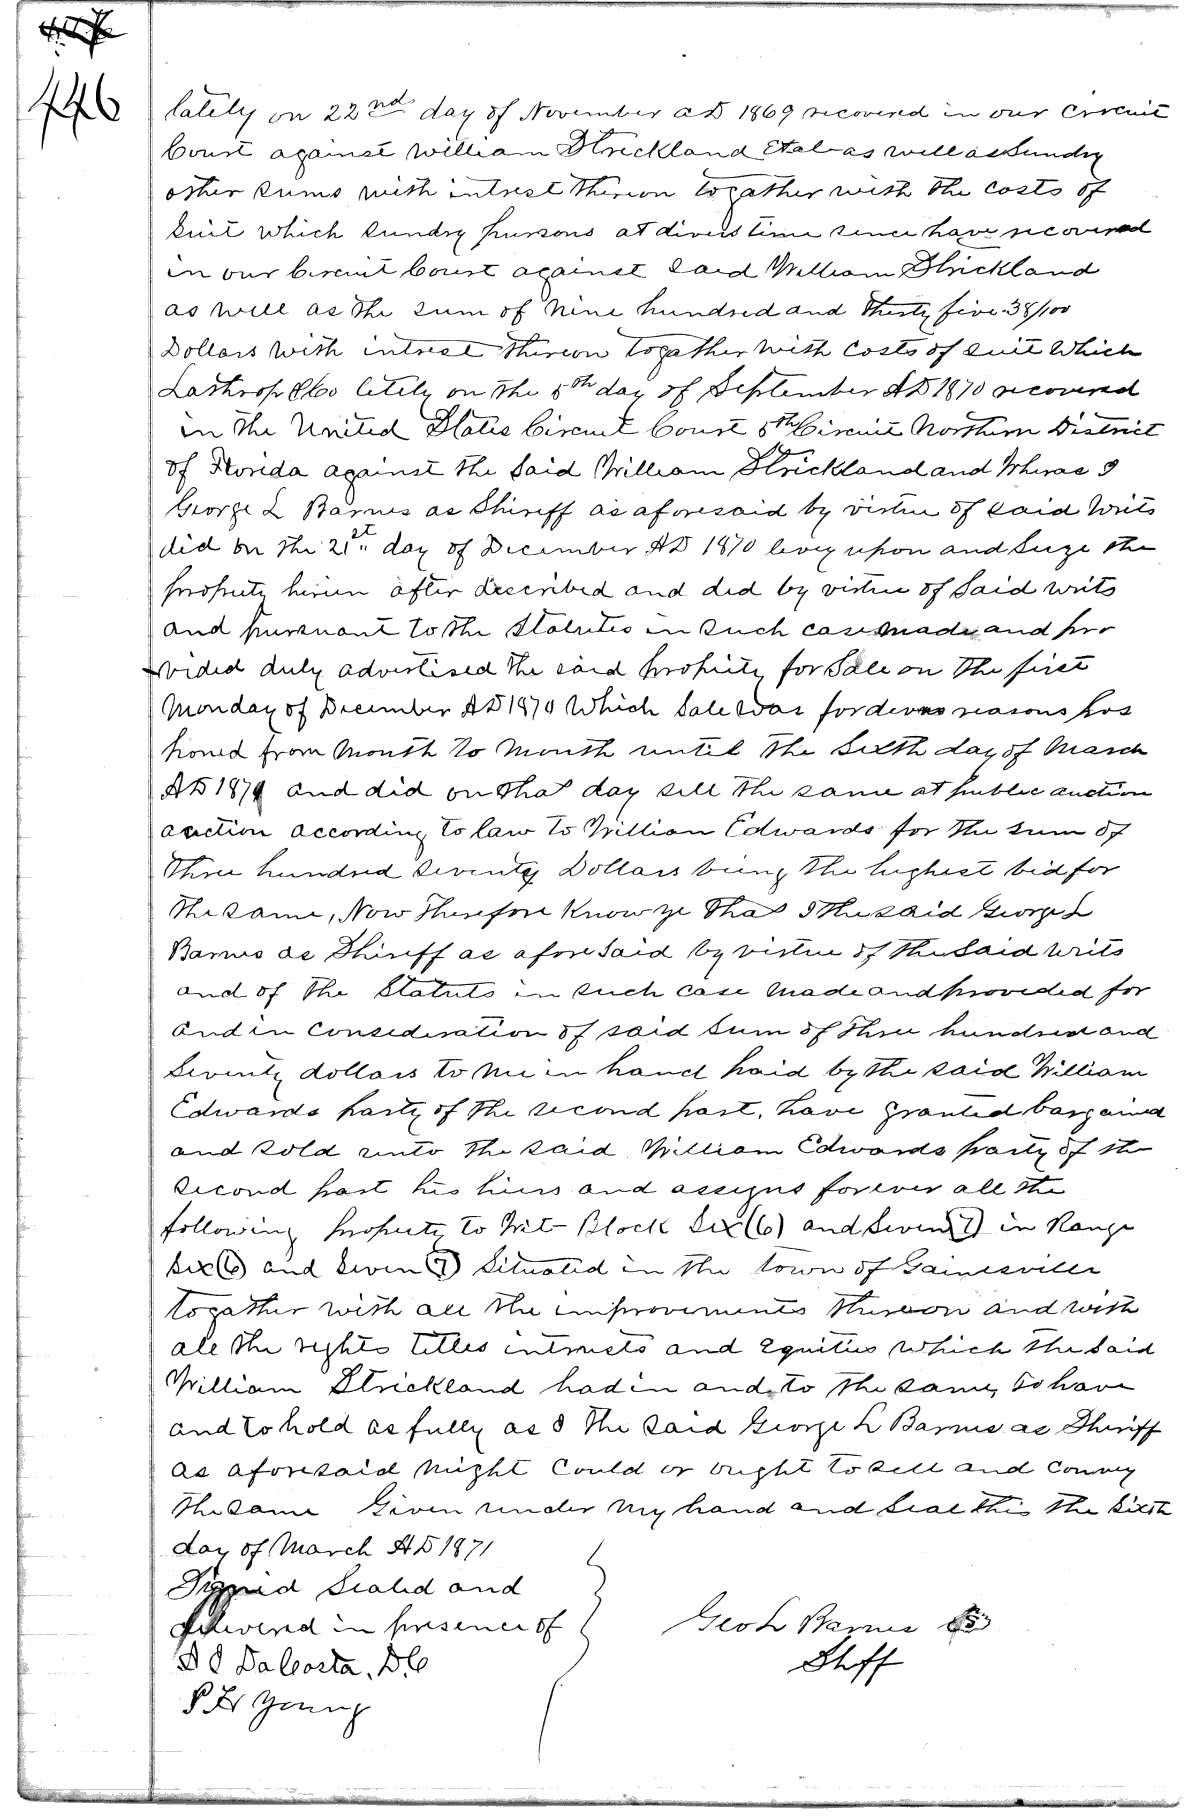 446
lately on 22nd day of November AD 1869 recovered in our Circuit
Court against William Strickland Etal as well as Sundry
other sums with intrest thereon togather with the costs of
Suit which sundry pursons at divers time since have recovered
in our Circuit Court against said William Strickland
as well as the sum of Nine hundred and thirty five 38/100
Dollars with intrest thereon togather with costs of suit which
Lathrop & Co letely on the 5th day of September AD 1870 recovered
in the United States Circuit Court 5th Circuit Northern District
of Florida against the Said William Strickland and Wheras I
George L Barnes as Shireff as aforesaid by virtue of said Writs
did on the 21st day of December AD 1870 levey upon and Seize the
propety herien after described and did by virtue of Said writs
and pursuant to the Statutes in such case made and pro
vided duly advertised the said Propity for Sale on the first
Monday of December AD 1870 Which Sale was for divers reasons pos
poned from Month to Month until the Sixth day of March
AD 1871 and did on that day sell the same at public auction
auction according to law to William Edwards for the sum of
three hundred seventy Dollars being the highest bid for
the same, Now Therefore Know ye That I the said George L
Barnes as Shireff as afore Said by virtue of the Said writs
and of the Statuts in such case made and proveded for
and in consideration of said Sum of three hundred and
Seventy dollars to me in hand paid by the said William
Edwards party of the second part, have granted bargained
and sold unto the said William Edwards party of the
second part his hiers and assigns forever all the
following propety to Wit Block Six (6) and Seven (7) in Range
Six (6) and Seven (7) Situated in the town of Gainesville
togather with all the improvements thereon and with
all the rights titles intrusts and Equities which the Said
William Strickland had in and to the same, To have
and to hold as fully as I the said George L Barnes as Sheriff
as aforesaid might could or ought to sell and convey
the same Given under my hand and Seal this the Sixth
day of March AD 1871
Signed Sealed and
delivered in presence of
A I DaCosta, D.C
P H Young
Geo L Barnes
Shff